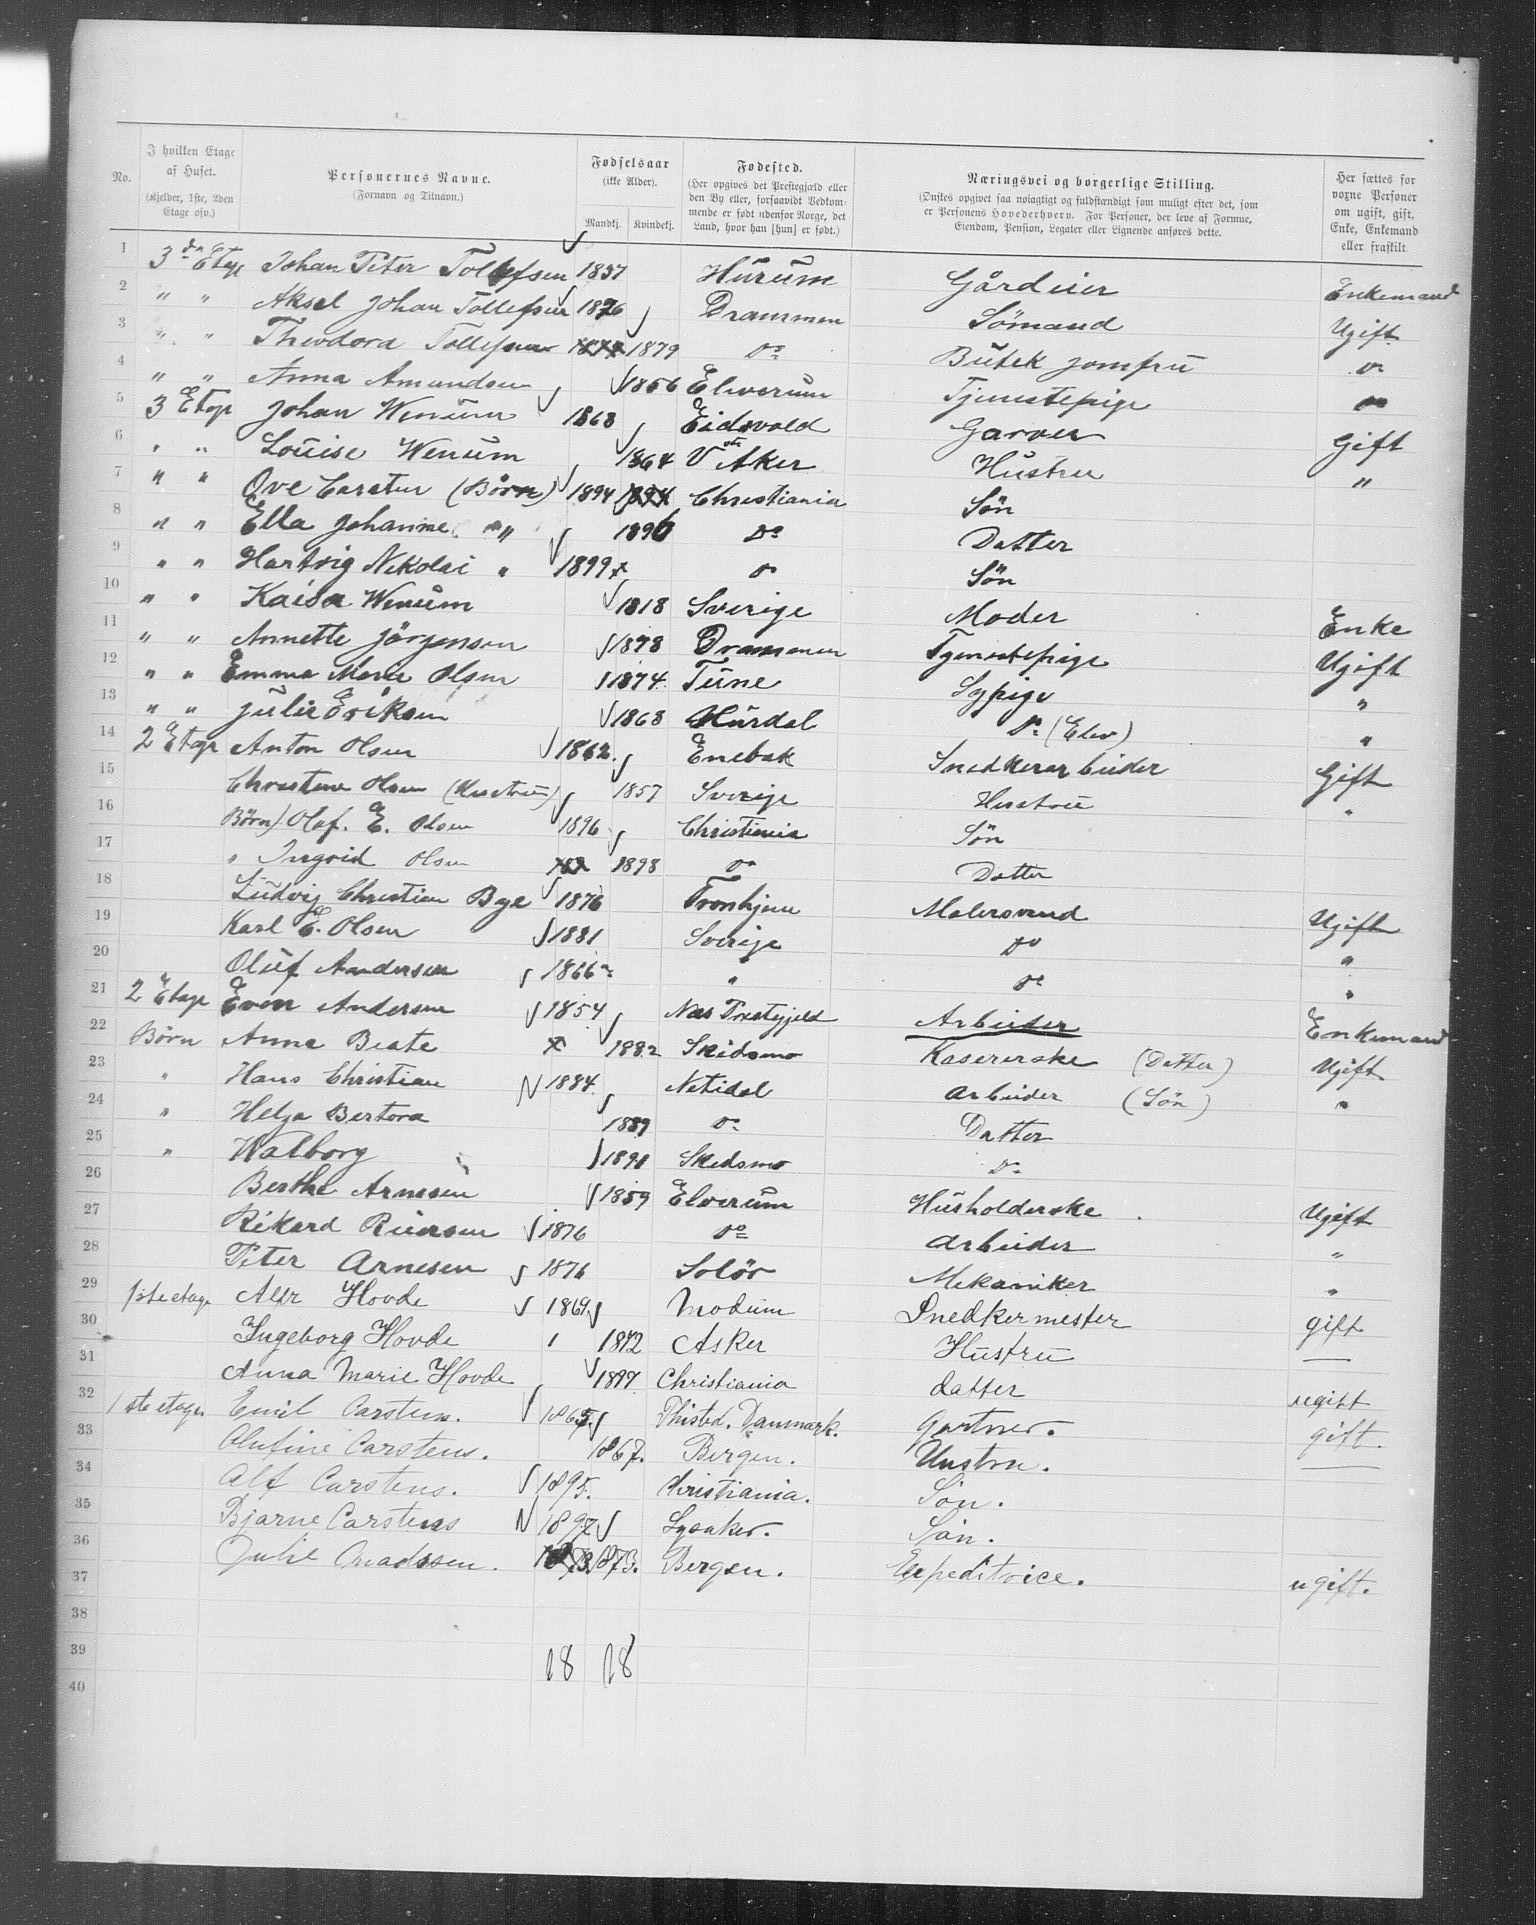 No. | I hvilken Etage af Huset. (Kjelder, 1ste, 2den Etage osv.) | Personernes Navne. (Fornavn og Tilnavn.) | Fødselsaar (ikke Alder). Mandkj. Kvindekj. | Fødested. (Her opgives det Prestegjæld eller den By eller, forsaavidt Vedkommende er født udenfor Norge, det Land, hvor han [hun] er født.) | Næringsvei og borgerlige Stilling. (Ønskes opgivet saa nøiagtigt og fuldstændigt som muligt efter det, som er Personens Hovederhverv. For Personer, der leve af Formue, Eiendom, Pension, Legater eller Lignende anføres dette. | Her sættes for voxne Personer om ugift, gift, Enke, Enkemand eller fraskilt.
1 3dn Etage Johan Peter Tollefsen 1837 Hurum Gårdeier Enkemand
2 " " Aksel Johan Tollefsen 1876 Drammen Sömand Ugift
3 " " Theodora Tollefsen 1879 Do Butik jomfru Do
4 " " Anna Amundsen 1856 Elverum Tjenestepige Do
5 3 Etage Johan Wenum 1868 Eidsvold Garver Gift
6 " " Louise Wenum 1864 V Aker Hustru "
7 " " Ove Carsten (Börn) 1894 Christiania Sön
8 " " Ella Johanne " 1896 Do Datter
9 " " Hartvig Nikolai " 1899 Do Sön
10 " " Kaisa Wenum 1818 Sverige Moder Enke
11 " " Annette Jörgensen 1878 Drammen Tjenestepige Ugift
12 " " Emma Marie Olsen 1874 Tune Sypige "
13 " " Julie Eriksen 1868 Hurdal Do (Elev) "
14 2 Etage Anton Olsen 1862 Enebak Snedkerarbeider Gift
15 Christine Olsen (Hustru) 1857 Sverige Hustru "
16 Börn) Olaf. E. Olsen 1896 Christiania Sön
17 " Ingrid Olsen 1898 Do Datter
18 Ludvig Christian Bye 1876 Tronhjem Malersvend Ugift
19 Karl E. Olsen 1881 Sverige Do "
20 Oluf Andersen 1866 " Do "
21 2 Etage Even Andersen 1854 Nes Prestegjeld Arbeider Enkemand
22 Börn Anna Beate 1882 Skidsmo Kasererske (Datter) Ugift
23 " Hans Christian 1884 Netidal Arbeider (Sön) "
24 " Helga Bertora 1889 Do Datter
25 " Walborg 1891 Skedsmo Do
26 Berthe Arnesen 1859 Elverum Husholderske Ugift
27 Rikard 1876 Do Arbeider "
28 Peter Arnesen 1876 Solör Mekaniker "
29 1ste etage Alfr Hovde 1869 Modum Snedkermester gift
30 Ingeborg Hovde 1872 Asker Hustru —
31 Anna Marie Hovde 1897 Christiania datter ugift
32 1ste etage Emil Carstens. 1865. Thisted. Danmark. Gartner. gift.
33 Olufine Carstens. 1867. Bergen. Hustru. —
34 Alf Carstens. 1895. Kristiania. Sön.
35 Bjarne Carstens 1897 Lysaker. Sön.
36 Julie Madssen. 1873. Bergen. Expeditrice. ugift.
37
38
39 18 18
40